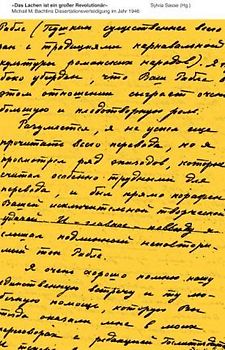 «Das Lachen ist ein großer Revolutionär» Sylvia Sasse (Hg.)
Michail M. Bachtins Dissertationsverteidigung im Jahr 1946
Рабле (Пушкин существенно свя
зан с традициями карнавальной
культуры романских народов). Я
боко убежден, что Ваш Рабле в
этом отношении сыграет очень
большую и плодотворную роль.
Разумеется, я не успел еще
прочитать всего перевода, но я
просмотрел ряд эпизодов, которые
считал особенно трудными для
перевода, и был прямо поражен
Вашей исключительной творческой
удачей. И – главное – повсюду я
слышал подлинный неповтори-
мый тон Рабле.
Я очень хорошо помню нашу
единственную встречу и ту
помощь, которую Вы
тогда оказали мне в моих
переговорах с редакцией